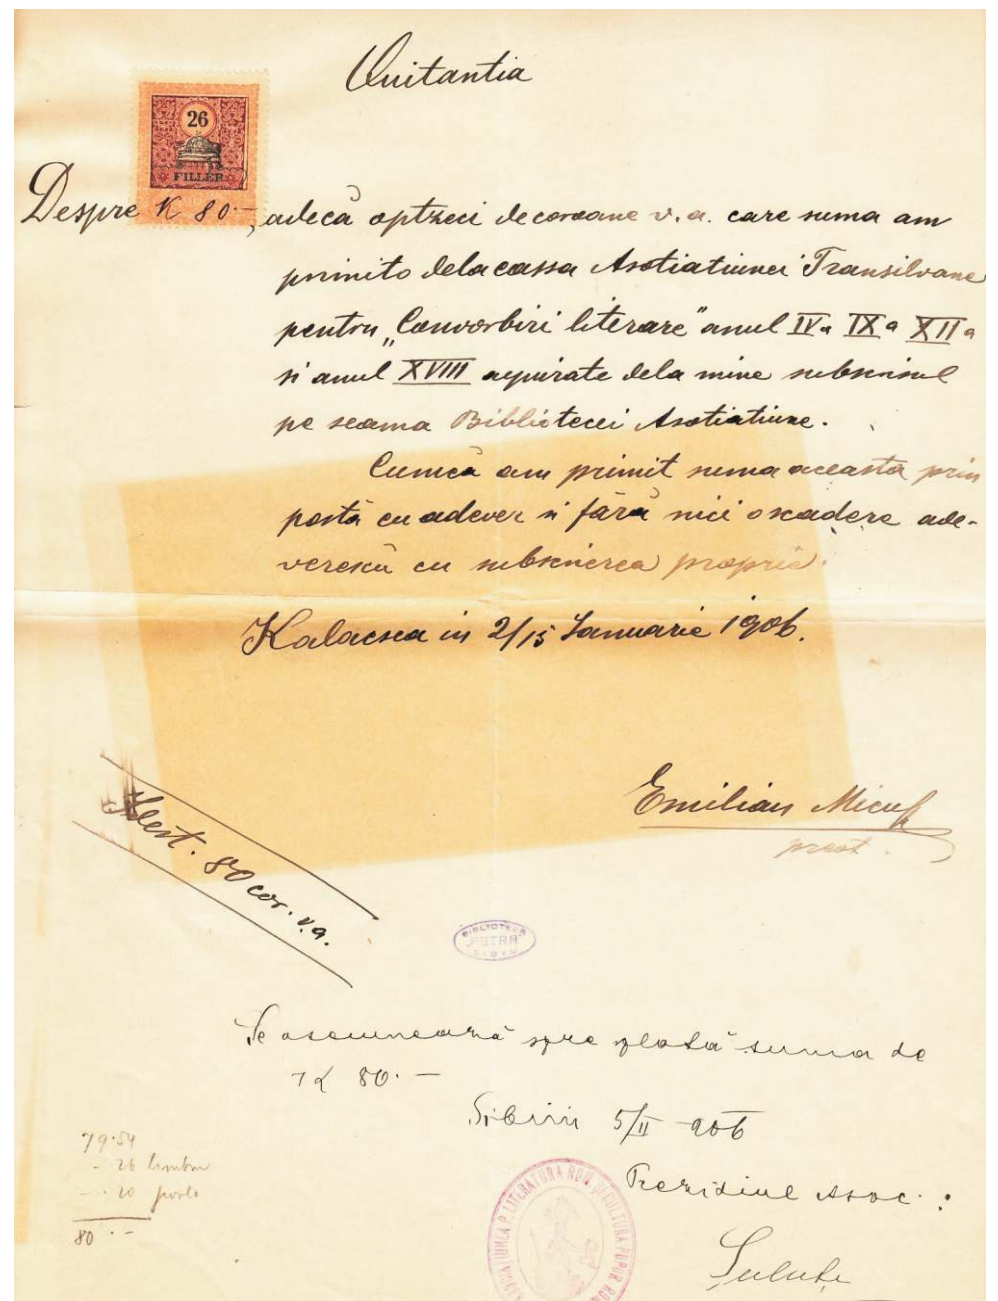 Quitantia
26
FILLÉR
Despre K 80·-, adecă optzeci de coroane v. a. care suma am
primito dela cassa Asotiatiunei Transilvane
pentru „Convorbiri literare" anul IV a IX a XII a
si anul XVIII aquirate dela mine subscrisul
pe seama Bibliotecei Asotiatiune.
Cumcă am primit suma aceasta prin
postă cu adever si fără nici o scadere ade-
verescŭ cu subscrierea propriă.
Kalacsea in 2/15 Ianuarie 1906.
Emilian Micu
preot.
80 cor. v. a.
BIBLIOTECA
"ASTRA"
SIBIU
Se asemnează spre plată suma de
K 80·-
Sibiiu 5/II 906
Prezidiul Asoc.:
79·54
-·26 timbru
-·20 porto
80·-
ASOCIATIUNEA P. LITERATURA ROM. ȘI CULTURA POPOR. ROM
Șuluțu